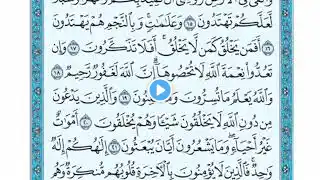 لَعَلَّكُمْ تَهْتَدُونَ ١٥ وَعَلَٰمَٰتٍ وَبِالنَّجْمِ هُمْ يَهْتَدُونَ
١٦ أَفَمَن يَخْلُقُ كَمَن لَّا يَخْلُقُ أَفَلَا تَذَكَّرُونَ ١٧ وَإِن
تَعُدُّوا نِعْمَةَ اللَّهِ لَا تُحْصُوهَا إِنَّ اللَّهَ لَغَفُورٌ رَّحِيمٌ
١٨ وَاللَّهُ يَعْلَمُ مَا تُسِرُّونَ وَمَا تُعْلِنُونَ ١٩ وَالَّذِينَ يَدْعُونَ
مِن دُونِ اللَّهِ لَا يَخْلُقُونَ شَيْئًا وَهُمْ يُخْلَقُونَ ٢٠ أَمْوَٰتٌ
غَيْرُ أَحْيَاءٍ وَمَا يَشْعُرُونَ أَيَّانَ يُبْعَثُونَ ٢١ إِلَٰهُكُمْ إِلَٰهٌ
وَٰحِدٌ فَالَّذِينَ لَا يُؤْمِنُونَ بِالْآخِرَةِ قُلُوبُهُم مُّنكِرَةٌ وَهُم